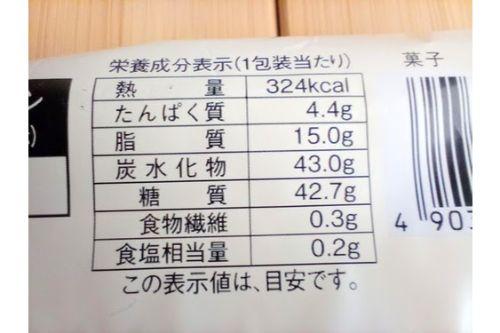 栄養成分表示(1包装当たり)
熱量 324kcal
たんぱく質 4.4g
脂質 15.0g
炭水化物 43.0g
糖質 42.7g
食物繊維 0.3g
食塩相当量 0.2g
この表示値は、目安です。
菓子
4 903